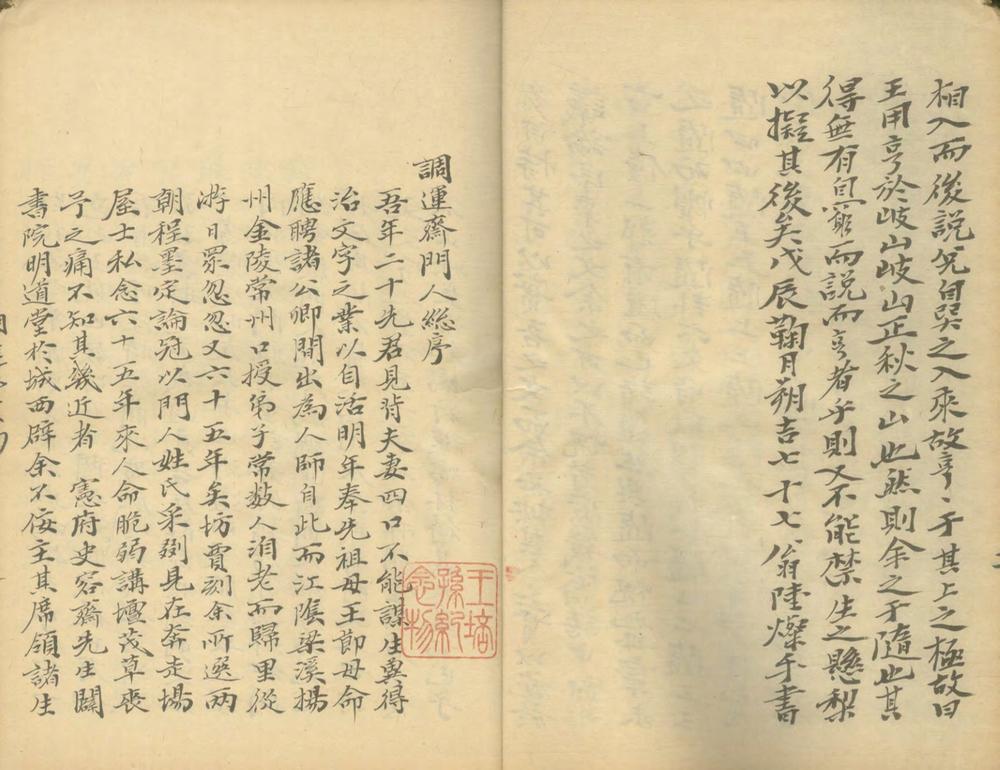 相入而後説兌自巽之入來故亨亨于其上之極故曰
王用亨於岐山岐山正秋之山也然則余之于隨也其
得無有自巽而説而亨者乎則又不能禁生之懸梨
以擬其後矣戊辰鞠月朔吉七十七翁陸燦手書
調運齋門人総序
吾年二十先君見背夫妻四口不能謀生異得
治文字之業以自活明年奉先祖母王節母命
應聘諸公卿間出為人師自此而江陰梁溪揚
州金陵常州口授弟子常數人洎老而歸里從
游日眾忽忽又六十五年矣坊賈刻余所選兩
朝程墨定論冠以門人姓氏采剟見在奔走場
屋士私念六十五年來人命脆弱講壇茂草喪
予之痛不知其幾近者 憲府史容齋先生闢
書院明道堂於城西辟余不佞主其席領諸生
王培孫紀念物